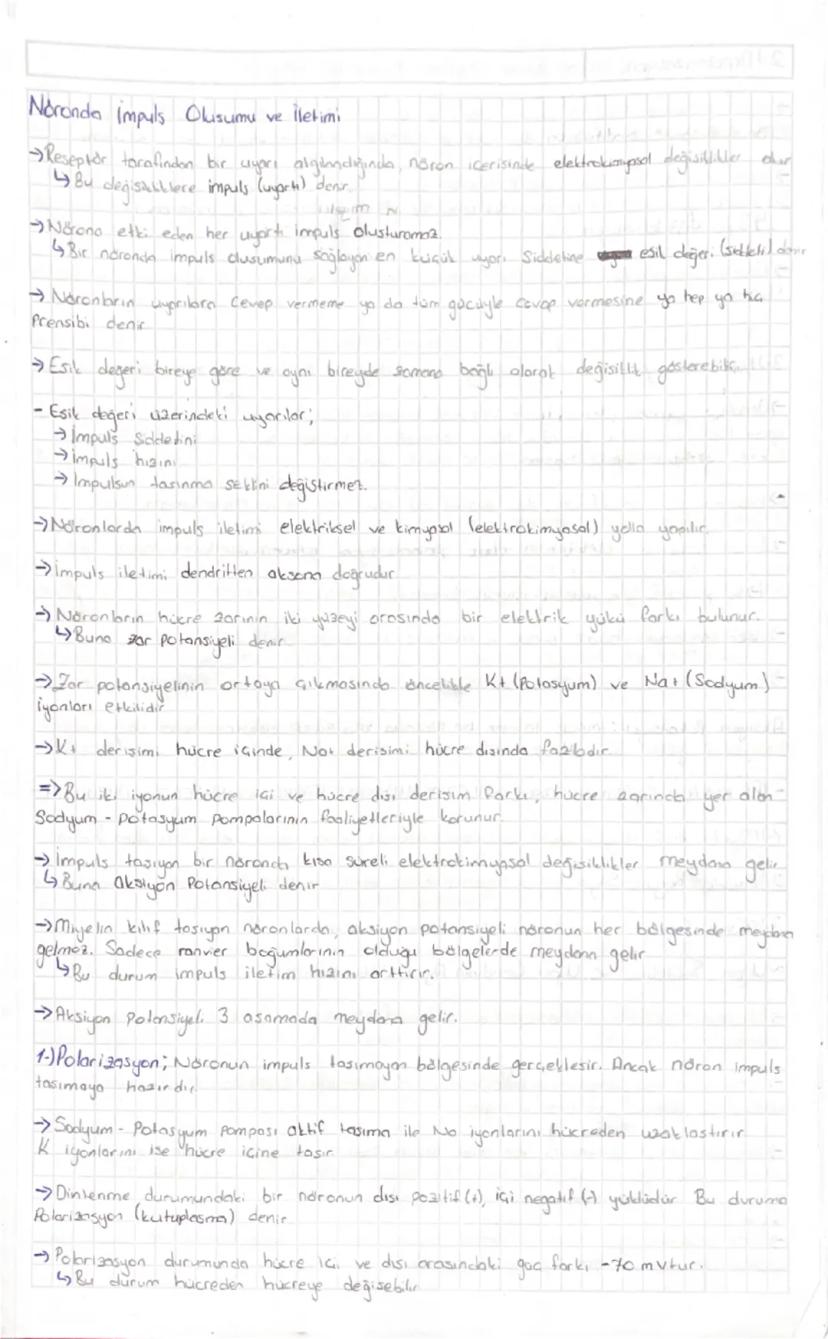 Nöronda İmpuls Olusumu ve İletimi
→Reseptör tarafından bir uyarı algılandığında, nöron icerisinde elektrokimyasal değisiklikler olur
↳Bu değisikliklere impuls (uyartı) denir.
→Nörona etki eden her uyartı impuls olusturamaz.
↳Bir nöronda impuls olusumunu sağlayan en küçük uyarı Siddetine esik değeri (siddeti) denir
→Nöronların uyarılara Cevep vermeme ya da tüm gücüyle cevap vermesine ya hep ya hiç
Prensibi denir
→Esik degeri bireye göre ve aynı bireyde zamana bağlı olarak değisiklik gösterebilir.
- Esik değeri üzerindeki uyarılar;
→İmpuls Siddetini
→İmpuls hızını
→İmpulsun tasınma seklini değistirmez.
→Nöronlarda impuls iletimi elektriksel ve kimyasal (elektrokimyasal) yolla yapılır.
→İmpuls iletimi dendritten aksona doğrudur
→Nöronların hücre zarının iki yüzeyi arasında bir elektrik yükü farkı bulunur.
↳Buna zar potansiyeli denir
→Zar potansiyelinin ortaya çıkmasında öncelikle K+ (Potasyum) ve Na+ (Sodyum)
iyonları etkilidir
→K+ derisimi hücre içinde, Na+ derisimi hücre dısında fazladır
=>Bu iki iyonun hücre içi ve hücre dısı derisim farkı, hücre zarında yer alan
Sodyum - Potasyum pompalarının faaliyetleriyle korunur.
→İmpuls tasıyan bir nöronda kısa süreli elektrokimyasal değisiklikler meydana gelir
↳Buna Aksiyon Potansiyeli denir
→Miyelin kılıf tasıyan nöronlarda, aksiyon potansiyeli nöronun her bölgesinde meydana
gelmez. Sadece ranvier boğumlarının olduğu bölgelerde meydana gelir
↳Bu durum impuls iletim hızını arttırır.
→Aksiyon Potansiyeli 3 asamada meydana gelir.
1-)Polarizasyon; Nöronun impuls tasımayan bölgesinde gerçeklesir. Ancak nöron impuls
tasımaya hazırdır.
→Sodyum - Potasyum Pompası aktif tasıma ile Na iyonlarını hücreden uzaklastırır
K iyonlarını ise hücre içine tasır
→Dinlenme durumundaki bir nöronun dısı pozitif (+), içi negatif (-) yüklüdür Bu duruma
Polarizasyon (kutuplasma) denir
→Polarizasyon durumunda hücre içi ve dısı arasındaki güç farkı -70 mvtur.
↳Bu durum hücreden hücreye değisebilir